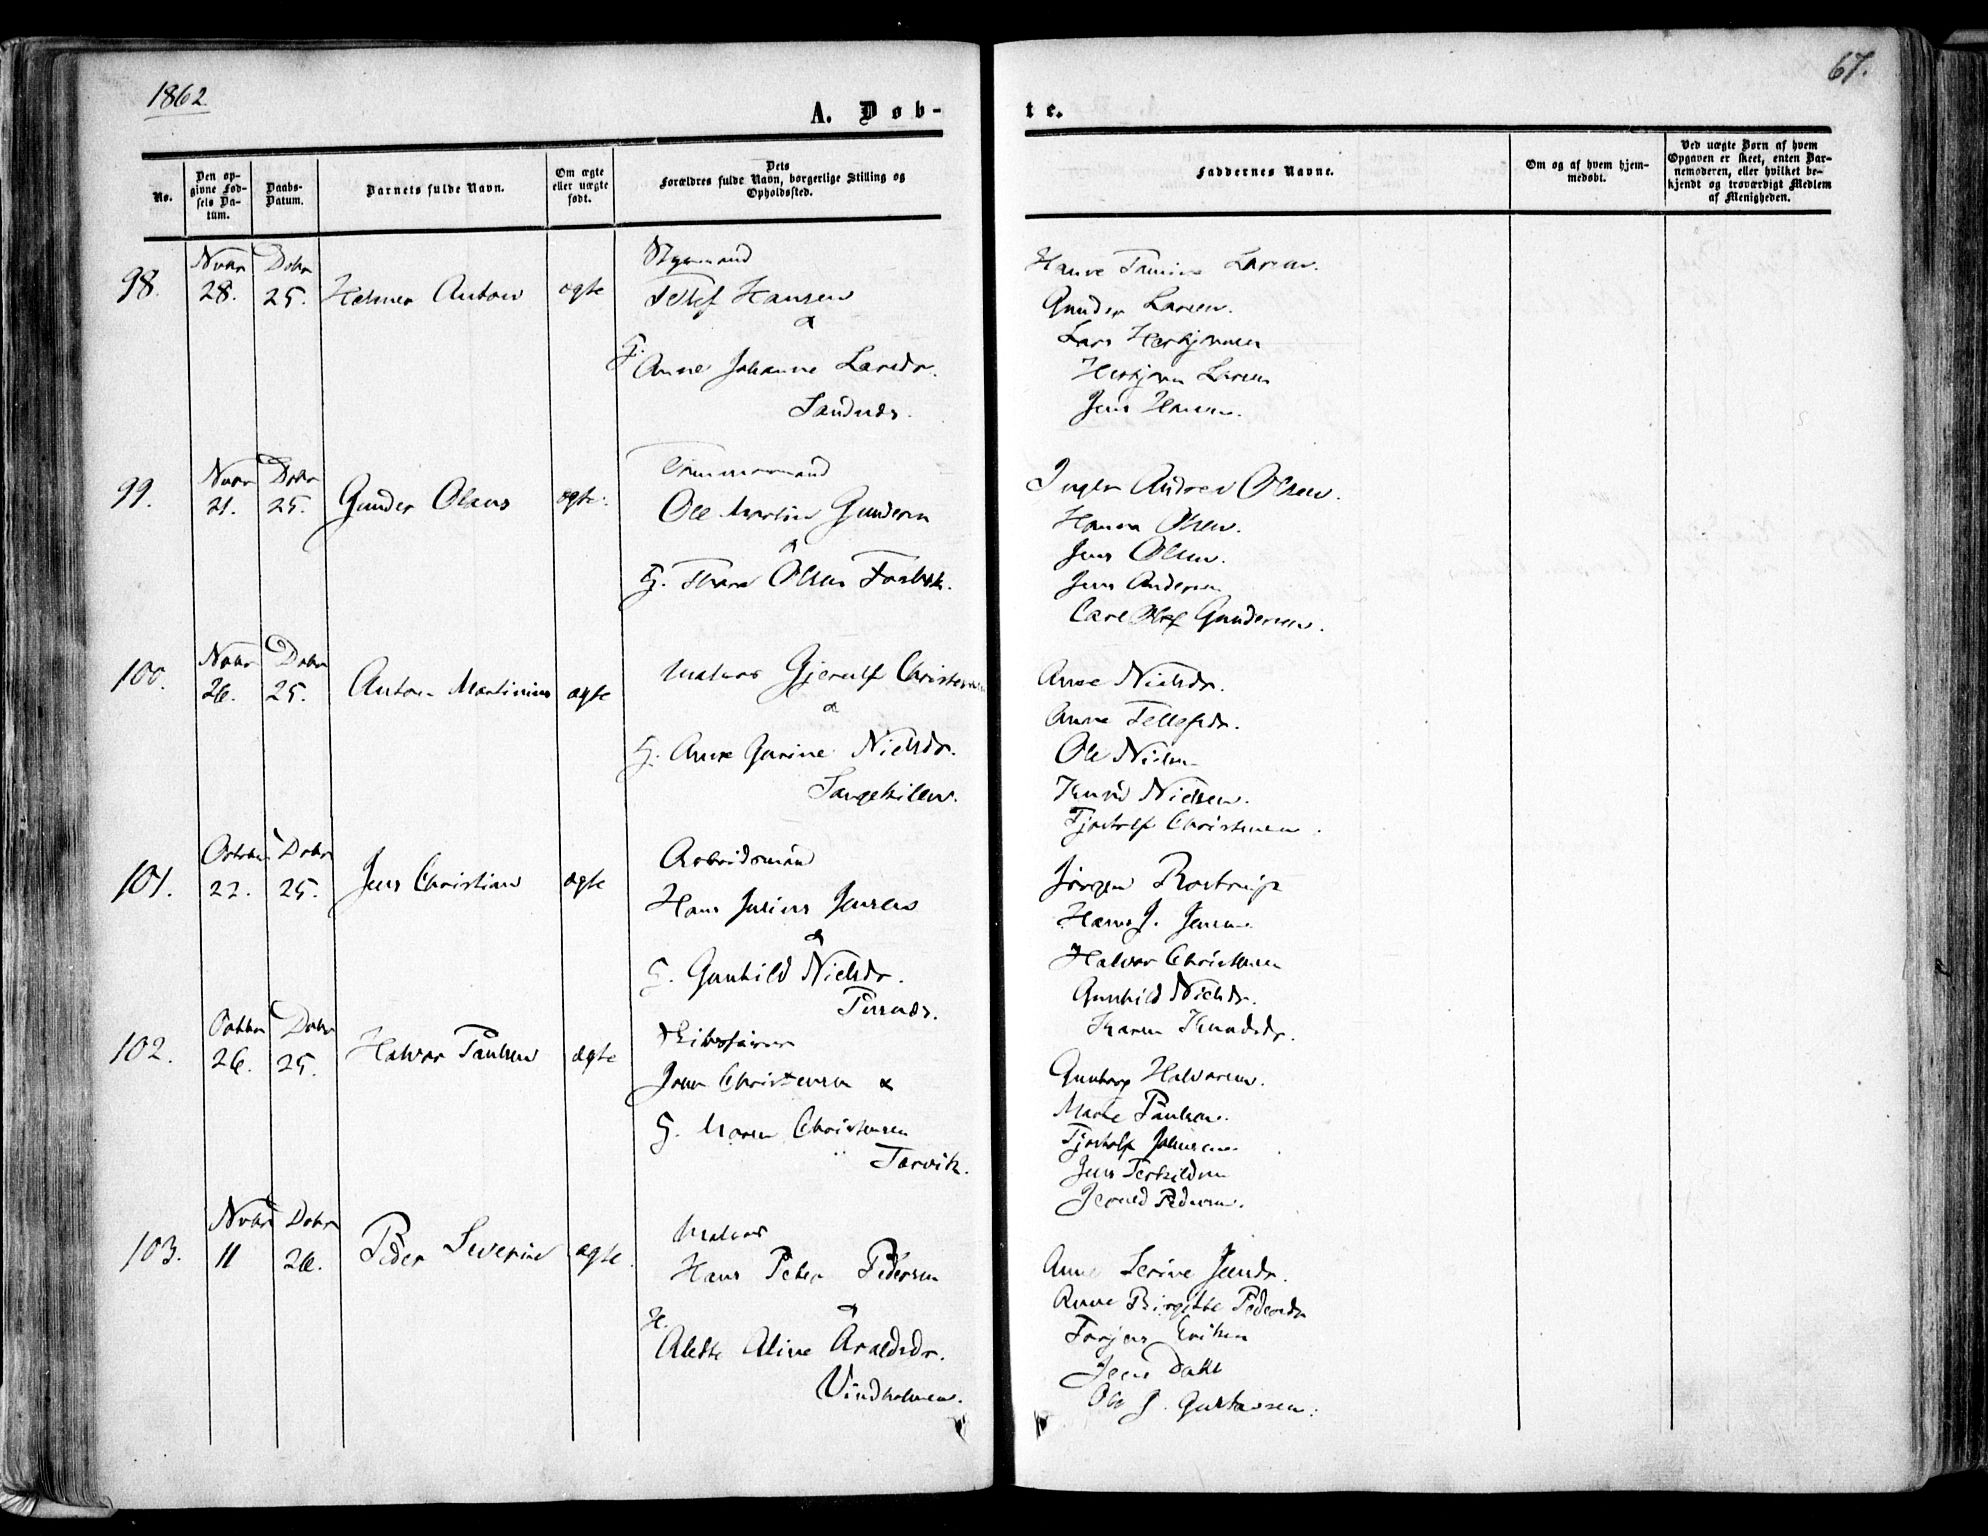 1862
67.
A. Døb-
te.
No.
Den op-
givne Fød-
sels Da-
tum.
Daabs-
Datum.
Barnets fulde Navn.
Om ægte
eller uægte
født.
Dets
Forældres fulde Navn, borgerlige Stilling og
Opholdssted.
Faddernes Navne.
Om og af hvem hjem-
medøbt.
Ved uægte Børn af hvem
Opgaven er skeet, enten Bar-
nemoderen, eller hvilket be-
kjendt og troværdigt Medlem
af Menigheden.
98.
Nvbr
28.
Dcbr
25.
Helmer Anton
ægte
Styrmand
Hansen
&
G. Anne Johanne Larsdr.
Sandnæs.
Larsen.
Gunder Larsen.
Lars Herbjørnsen
Herbjørn Larsen
Jens Hansen.
99.
Nvbr
21.
Dcbr
25.
Gunder Olaus
ægte.
Tømmermand
Ole Martin Gundersen
&
G. Olsen
Andrea Olsen.
Hanna Olsen.
Jens Olsen.
Jens Andersen
Carl Olaf Gundersen.
100.
Nvbr
26.
Dcbr
25.
Anton Martinius
ægte
Matros Gjerulf Christensen
&
G. Anne Gurine Nielsdr.
Anne Nielsdr.
Anne Tellefsdr.
Ole Nielsen
Knud Nielsen.
Fjostolf Christensen.
101.
Octobr
22.
Dcbr
25.
Jens Christian
ægte
Arbeidsmand
Hans Julius Jensen
&
G. Gunhild Nielsdr.
Jørgen Rostrup
Hans J. Jensen.
Halvor Christensen
Gunhild Nielsdr.
Karen Knudsdr.
102.
Octbr
26.
Dcbr
25.
Halvor Paulsen
ægte
Jens Christensen &
G. Maren Christensen
Torvik.
Gunborg Halvorsen.
Marte Paulsen.
Fjostolf Johnsen
Jens Terkildsen
Jerund Pedersen.
103.
Nvbr
11
Dcbr
26.
Peder Severin
ægte.
Matros
Hans Peter Pedersen
&
H. Alette Aline Araldsdr.
Vindholmen.
Anne Serine Jensdr.
Anne Birgitte Pedersdr
Torjus Eriksen
Jens Dahl
Ole J. Gustavsen.